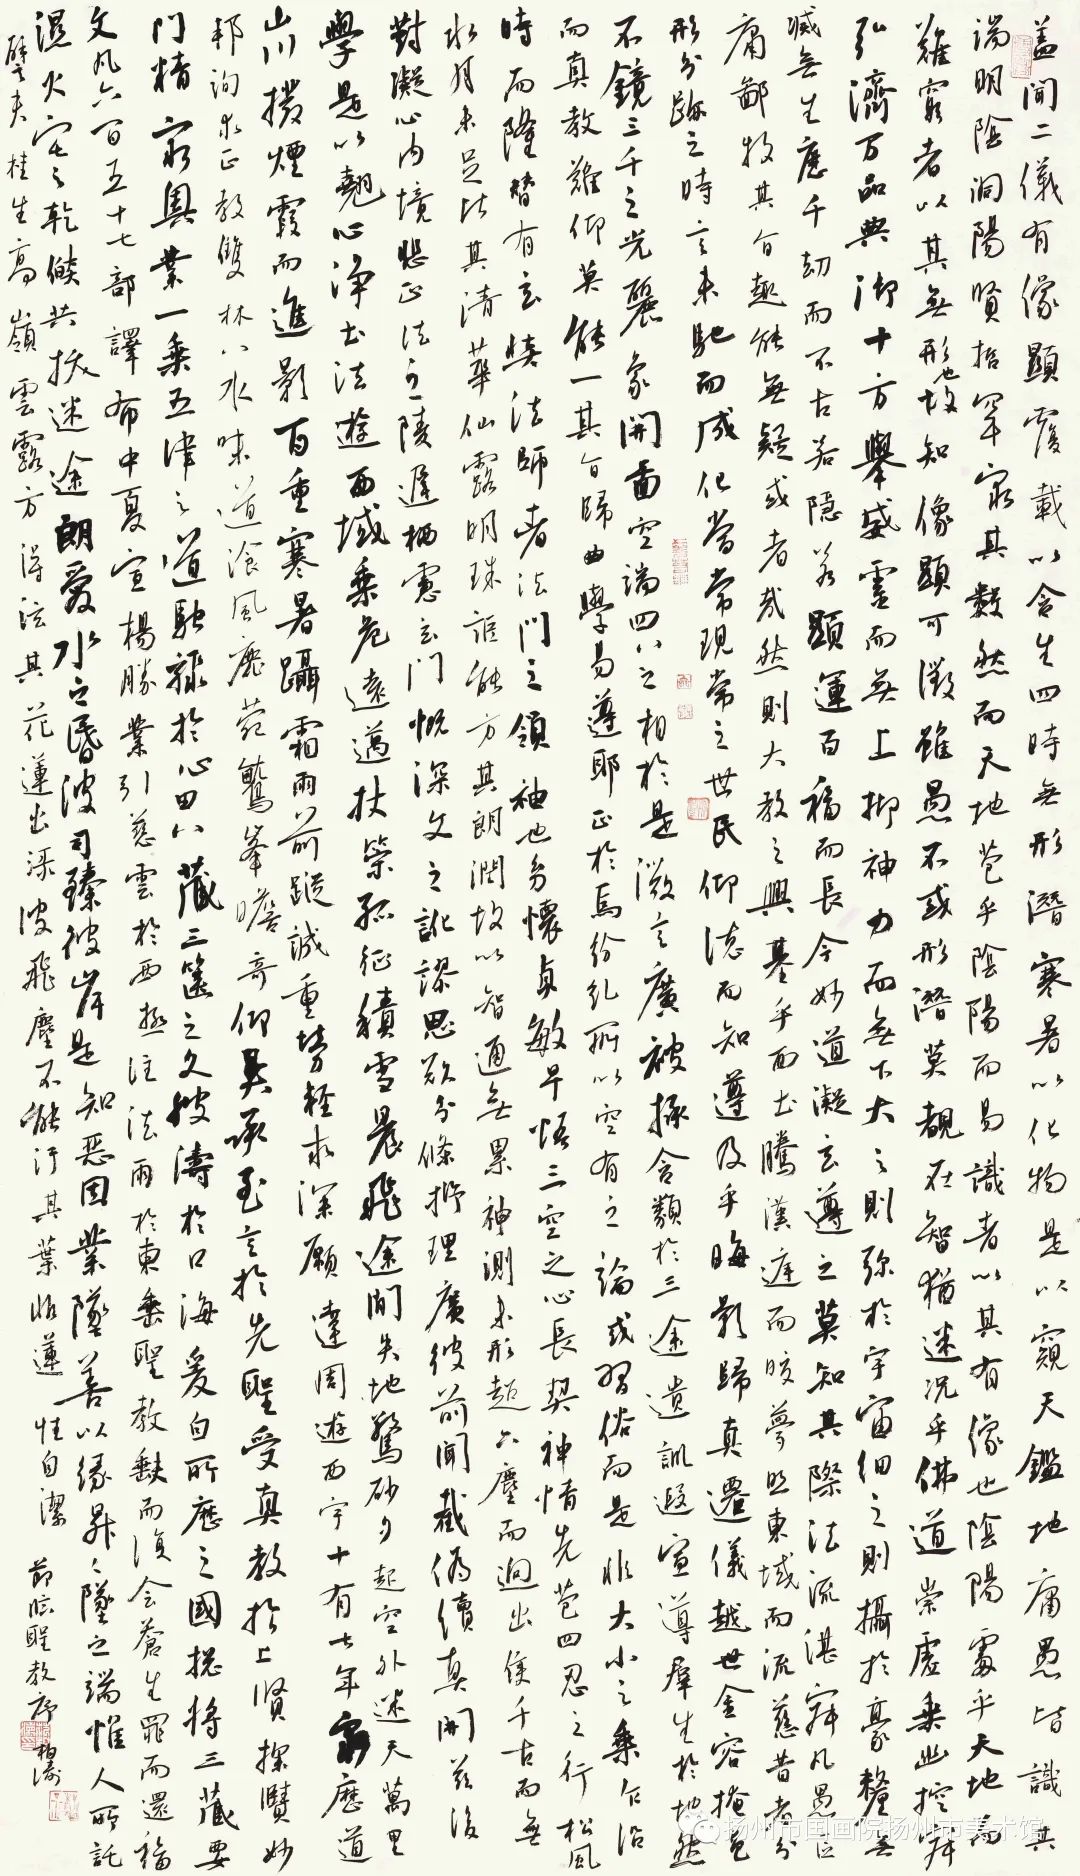 蓋聞二儀有像顯覆載以含生四時無形潛寒暑以化物是以窺天鑑地庸愚皆識其
端明陰洞陽賢哲罕窮其數然而天地苞乎陰陽而易識者以其有像也陰陽處乎天地而
難窮者以其無形也故知像顯可徵雖愚不惑形潛莫覩在智猶迷況乎佛道崇虛乘幽控寂
弘濟萬品典御十方舉威靈而無上抑神力而無下大之則弥於宇宙細之則攝於豪釐無
滅無生應千劫而不古若隱若顯運百福而長今妙道凝玄遵之莫知其際法流湛寂凡愚區
庸鄙投其旨趣能無疑或者哉然則大教之興基乎西土騰漢庭而皎夢照東域而流慈昔者分
形分跡之時言未馳而成化當常現常之世民仰德而知遵及乎晦影歸真遷儀越世金容掩色
不鏡三千之光麗象開圖空端四八之相於是微言廣被拯含類於三途遺訓遐宣導群生於地然
而真教難仰莫能一其旨歸曲學易遵耶正於焉紛糺所以空有之論或習俗而是非大小之乘乍沿
時而隆替有玄奘法師者法門之領袖也幼懷貞敏早悟三空之心長契神情先苞四忍之行松風
水月未足比其清華仙露明珠詎能方其朗潤故以智通無累神測未形超六塵而迥出隻千古而無
對凝心內境悲正法之陵遲栖慮玄門慨深文之訛謬思欲分條析理廣彼前聞截偽續真開茲後
學是以翹心淨土法遊西域乘危遠邁杖策孤征積雪晨飛途間失地驚砂夕起空外迷天萬里
山川撥煙霞而進影百重寒暑躡霜雨前蹤誠重勞輕求深願達周遊西宇十有七年窮歷道
邦詢求正教雙林八水味道飡風鹿菀鷲峯瞻奇仰異承至言於先聖受真教於上賢探賾妙
門精窮奧業一乘五律之道馳驟於心田八藏三篋之文波濤於口海爰自所歷之國揔將三藏要
文凡六百五十七部譯布中夏宣楊勝業引慈雲於西極注法雨於東垂聖教缺而復全蒼生罪而還福
濕火宅之乾燄共拔迷途朗愛水之昏波同臻彼岸是知惡因業墜善以緣昇昇墜之端惟人所託
譬夫桂生高嶺雲露方得泫其花蓮出淥波飛塵不能汙其葉非蓮性自潔 節臨聖教序
扬州市国画院扬州市美术馆